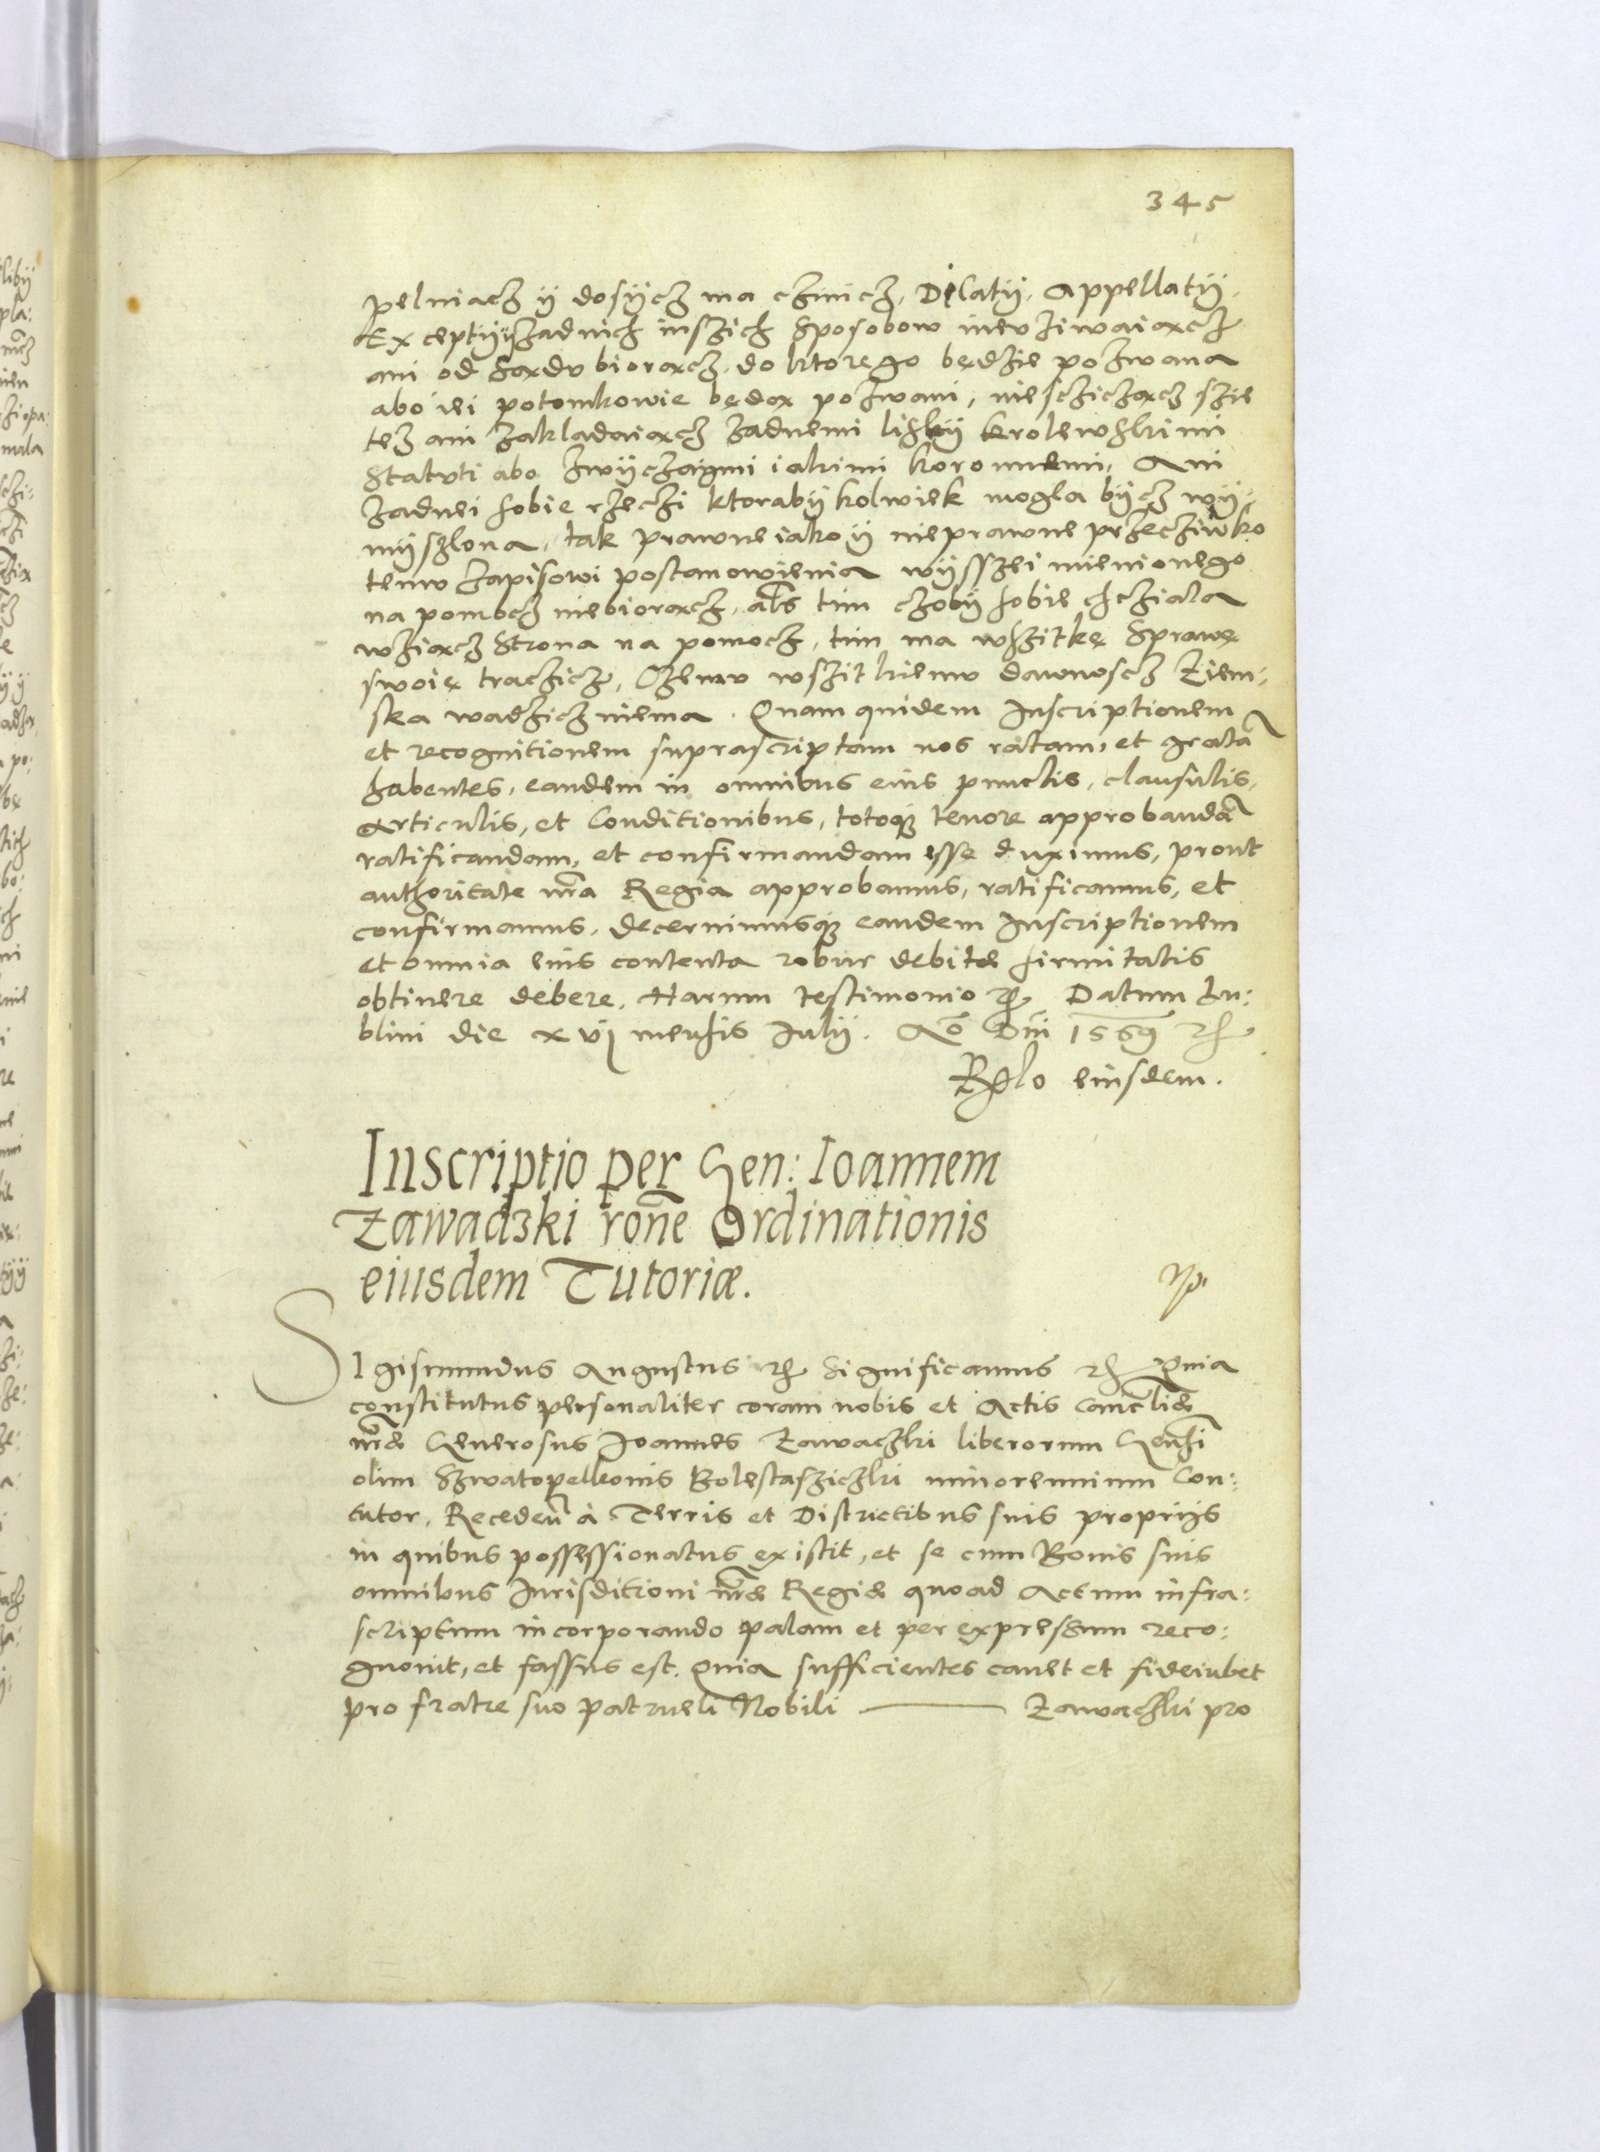 345
pelniacz ÿ dosÿcz ma czinicz, Dilatÿ, Appellatÿ.
Exceptÿÿ zadnich inszich Sposobow nieuziwaiącz
ani od Sądu biorącz do ktorego będzie pozwana
abo iei potomkowie będą pozwani, nieszcziczącz szie
tez ani zakladaiącz zadnemi listÿ krolewskimi
Statuti abo zwÿczaÿmi iakimi koronnemi, Ani
zadnei sobie rzeczi ktorabÿ kolwiek mogla bÿcz wÿ-
mÿszlona, tak prawne iako ÿ nieprawne przecziwko
temu zapisowi postanowienia wÿsszei mienionego
na pomocz niebiorącz, als tim czobÿ sobie chcziala
wziącz Strona na pomocz, tim ma wszitkę Sprawę
swoię traczicz, Czemu wszitkiemu dawnoscz Ziem:
ska wadzicz niema. Quam quidem Inscriptionem
et recognitionem suprascriptam nos ratam, et gratā
habentes, eandem in omnibus eius punctis, clausulis,
Articulis, et Conditionibus, totoq3 tenore approbandā
ratificandam, et confirmandam esse duximus, prout
authoritate nrā Regia approbamus, ratificamus, et
confirmamus, decernimusq3 eandem Inscriptionem
et omnia eius contenta robur debitæ firmitatis
obtinere debere. Harum testimonio Datum Lu:
blini die xvj mensis Julÿ. Ao Dni 1569
Rlo eiusdem.
Inscriptio per Gen: Ioannem
Zawadzki rone Ordinationis
eiusdem Tutoriæ.
SIgismundus Augustus Significamus Quia
constitutus personaliter coram nobis et Actis Cancliæ
nræ Generosus Joannes Zawaczki liberorum Gensi
olim Szwatopelkonis Bolestasziczki minorennium Con:
tutor, Receden à Terris et Districtibus suis proprÿs
in quibus possessionatus existit, et se cum Bonis suis
omnibus Jurisditioni nræ Regiæ quoad Actum infra:
scriptum incorporando palam et per expressum reco:
gnouit, et fassus est. Quia sufficientes cauet et fideiubet
pro fratre suo patrueli Nobili ——— Zawaczki pro